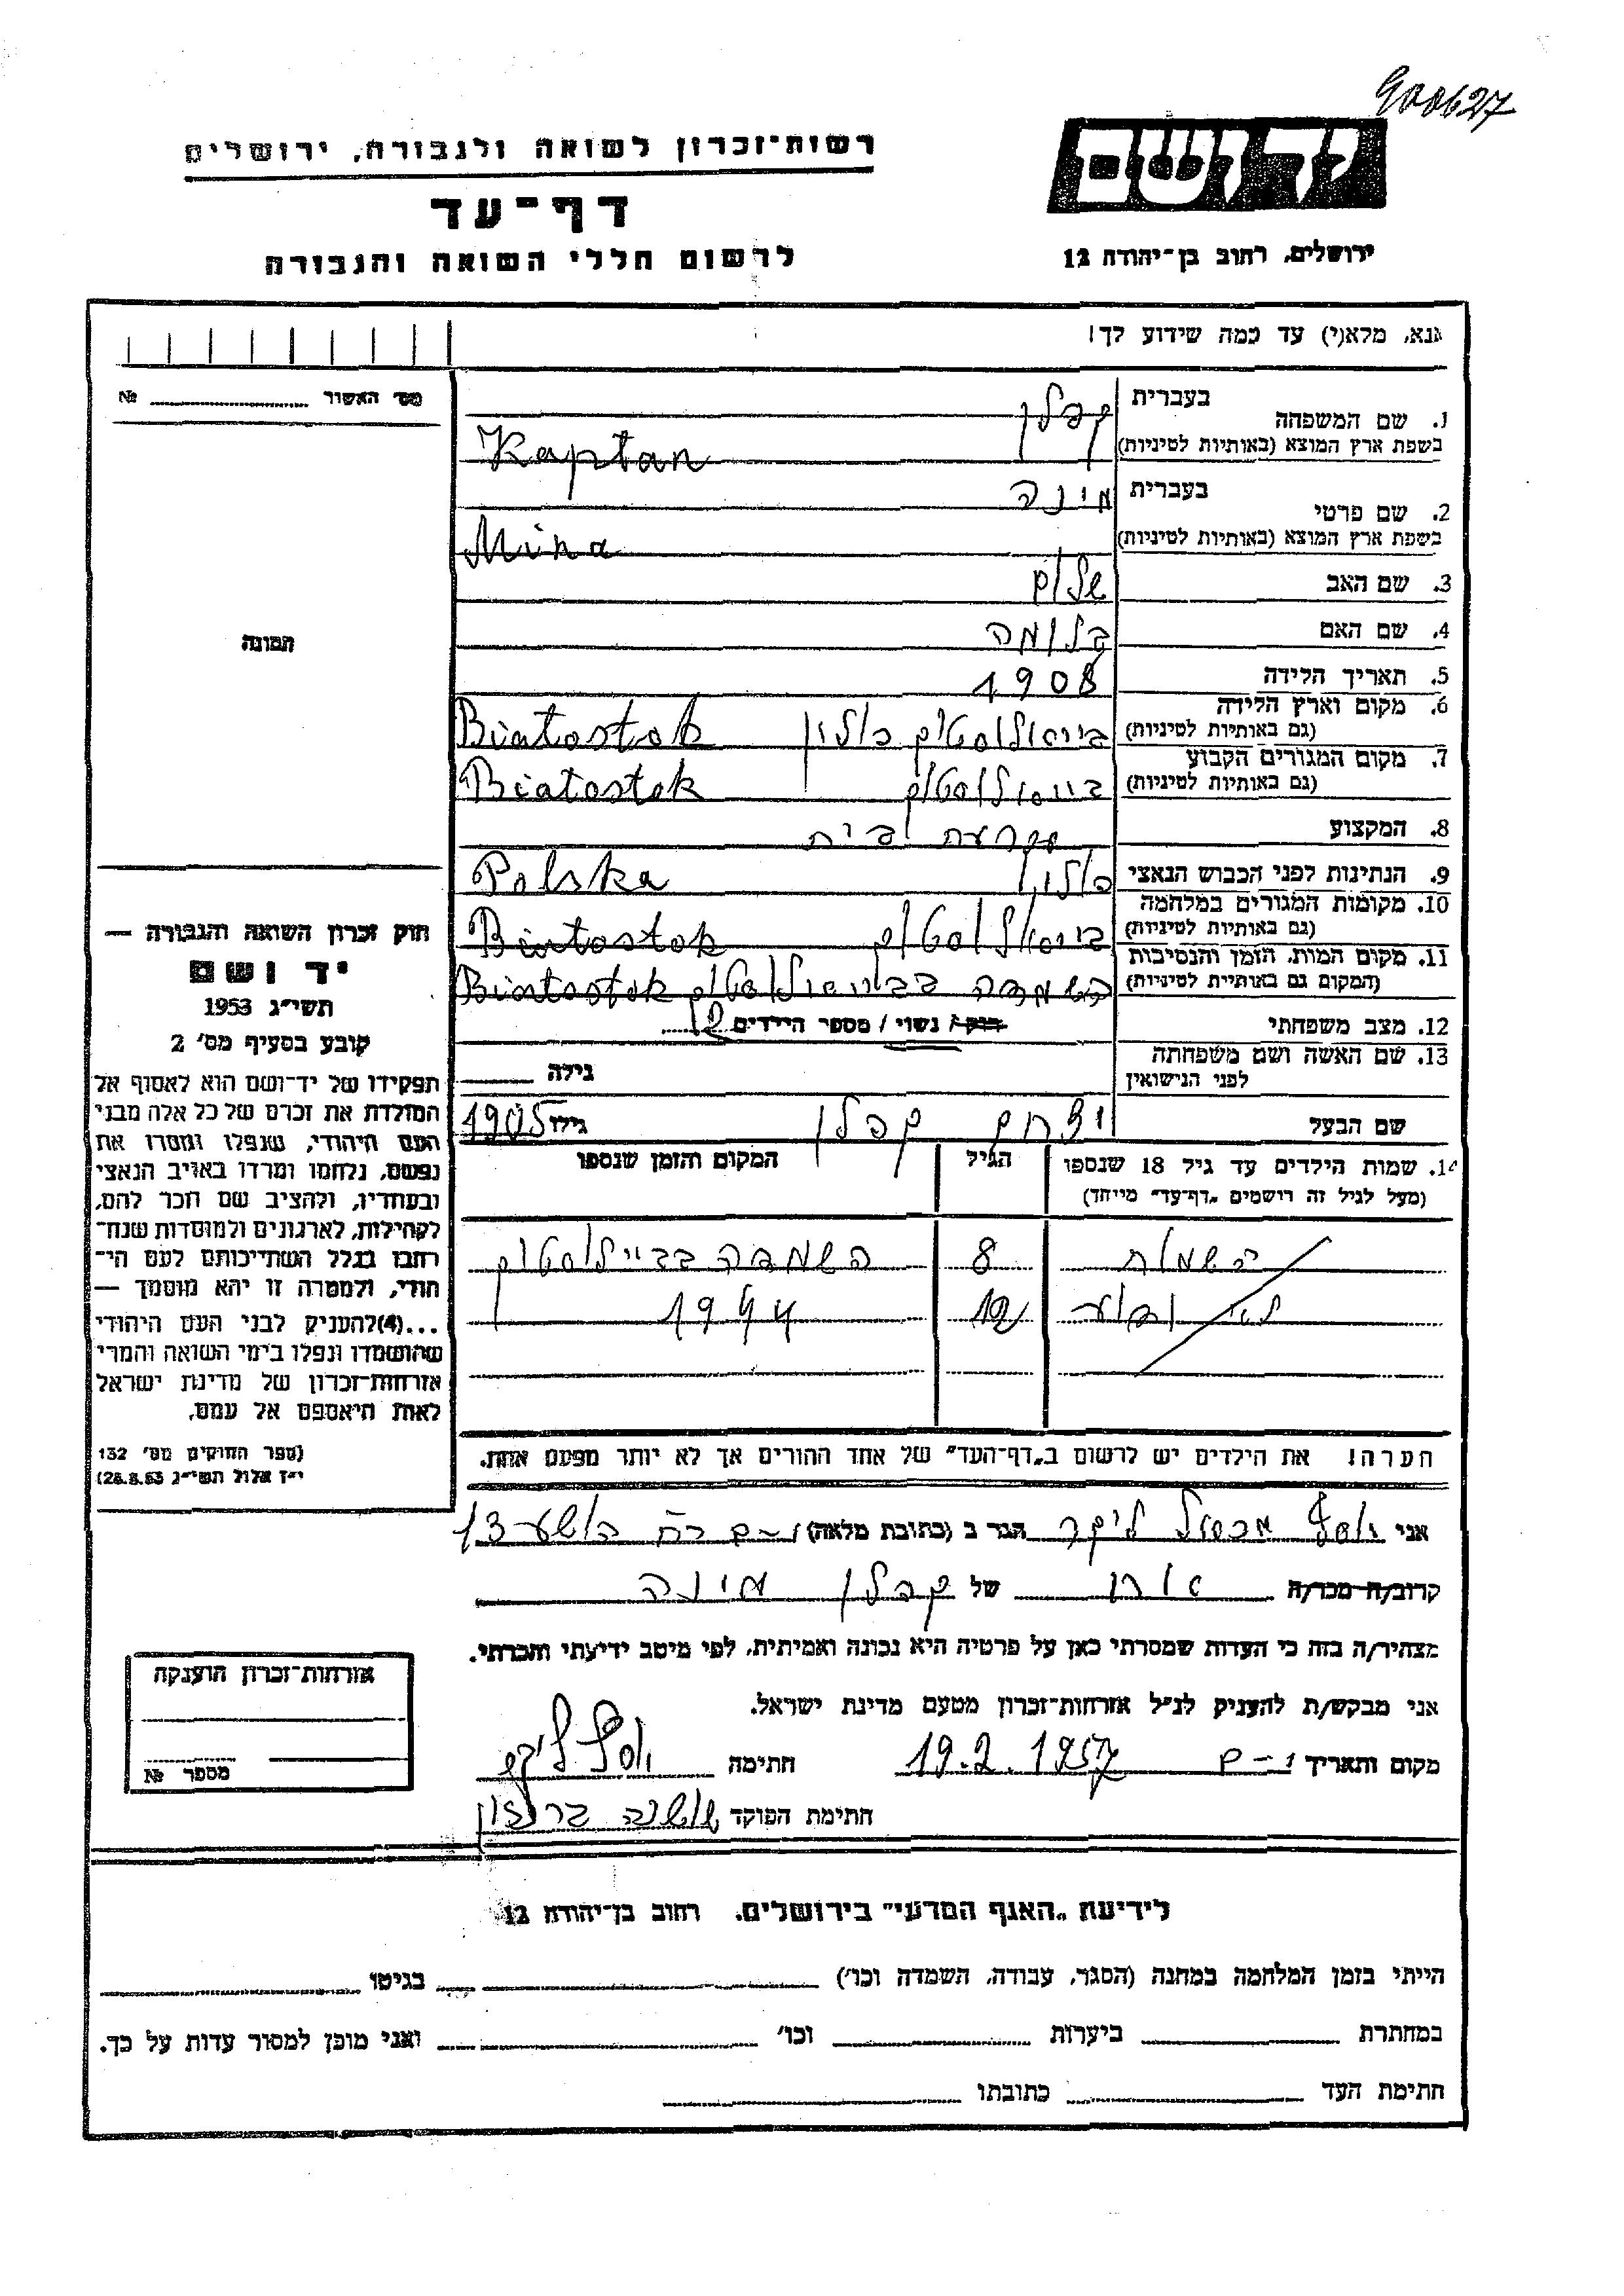 900627
יד ושם
ירושלים, רחוב בן־יהודה 12
רשות־זכרון לשואה ולגבורה, ירושלים
דף־עד
לרשום חללי השואה והגבורה
נא, מלא(י) עד כמה שידוע לך!
מס׳ האשור № 
1. שם המשפחה
בעברית קפלן
בשפת ארץ המוצא (באותיות לטיניות) Kapłan
2. שם פרטי
בעברית מינה
בשפת ארץ המוצא (באותיות לטיניות) Mina
3. שם האב שלום
4. שם האם בלומה
5. תאריך הלידה 1908
6. מקום וארץ הלידה
(גם באותיות לטיניות) ביאלוסטוק פולין Białostok
7. מקום המגורים הקבוע
(גם באותיות לטיניות) ביאלוסטוק Białostok
8. המקצוע עקרת בית
9. הנתינות לפני הכבוש הנאצי פולין Polska
10. מקומות המגורים במלחמה
(גם באותיות לטיניות) ביאלוסטוק Białostok
11. מקום המות, הזמן והנסיבות
(המקום גם באותיות לטיניות) השמדה בביאלוסטוק Białostok
12. מצב משפחתי רוק/ נשוי / מספר הילדים 2
13. שם האשה ושם משפחתה
לפני הנישואין גילה
שם הבעל יצחק קפלן גילו 1905
14. שמות הילדים עד גיל 18 שנספו הגיל המקום והזמן שנספו
(מעל לגיל זה רושמים „דף־עד״ מייחד)
השמות 8 השמדה בביאלוסטוק
לא ידוע 12 1944
הערה! את הילדים יש לרשום ב„דף־העד״ של אחד ההורים אך לא יותר מפעם אחת.
תמונה
חוק זכרון השואה והגבורה —
יד ושם
תשי״ג 1953
קובע בסעיף מס׳ 2
תפקידו של יד־ושם הוא לאסוף אל
המולדת את זכרם של כל אלה מבני
העם היהודי, שנפלו ומסרו את
נפשם, נלחמו ומרדו באויב הנאצי
ובעוזריו, ולהציב שם וזכר להם,
לקהילות, לארגונים ולמוסדות שנח־
רבו בגלל השתייכותם לעם הי־
הודי, ולמטרה זו יהא מוסמך —
...(4)להעניק לבני העם היהודי
שהושמדו ונפלו בימי השואה והמרי
אזרחות־זכרון של מדינת ישראל
לאות היאספם אל עמם.
(ספר החוקים מס׳ 132
י״ז אלול תשי״ג 28.8.53)
אני יוסף ליקר הגר ב (כתובת מלאה) י-ם הושע 13
קרוב/ה מכר/ה אח של קפלן מינה
מצהיר/ה בזה כי העדות שמסרתי כאן על פרטיה היא נכונה ואמיתית, לפי מיטב ידיעתי והכרתי.
אני מבקש/ת להעניק לנ״ל אזרחות־זכרון מטעם מדינת ישראל.
מקום ותאריך י-ם 19.2.1957 חתימה
חתימת הפוקד שושנה
אזרחות־זכרון הוענקה
מספר №
לידיעת „האגף המדעי״ בירושלים, רחוב בן־יהודה 12
הייתי בזמן המלחמה במחנה (הסגר, עבודה, השמדה וכו׳) בגיטו
במחתרת ביערות וכו׳ ואני מוכן למסור עדות על כך.
חתימת העד כתובתו